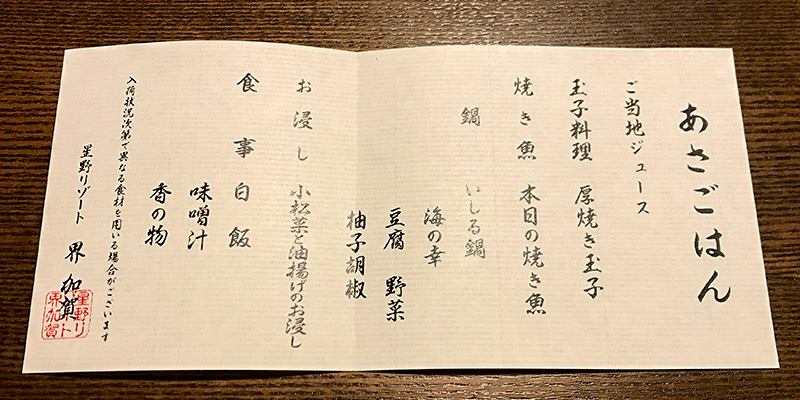 あさごはん
ご当地ジュース
玉子料理 厚焼き玉子
焼き魚 本日の焼き魚
鍋 いしる鍋
海の幸
豆腐 野菜
柚子胡椒
お浸し 小松菜と油揚げのお浸し
食事 白飯
味噌汁
香の物
入荷状況次第で異なる食材を用いる場合がございます
星野リゾート 界 加賀
星野リ
ゾート
界加賀